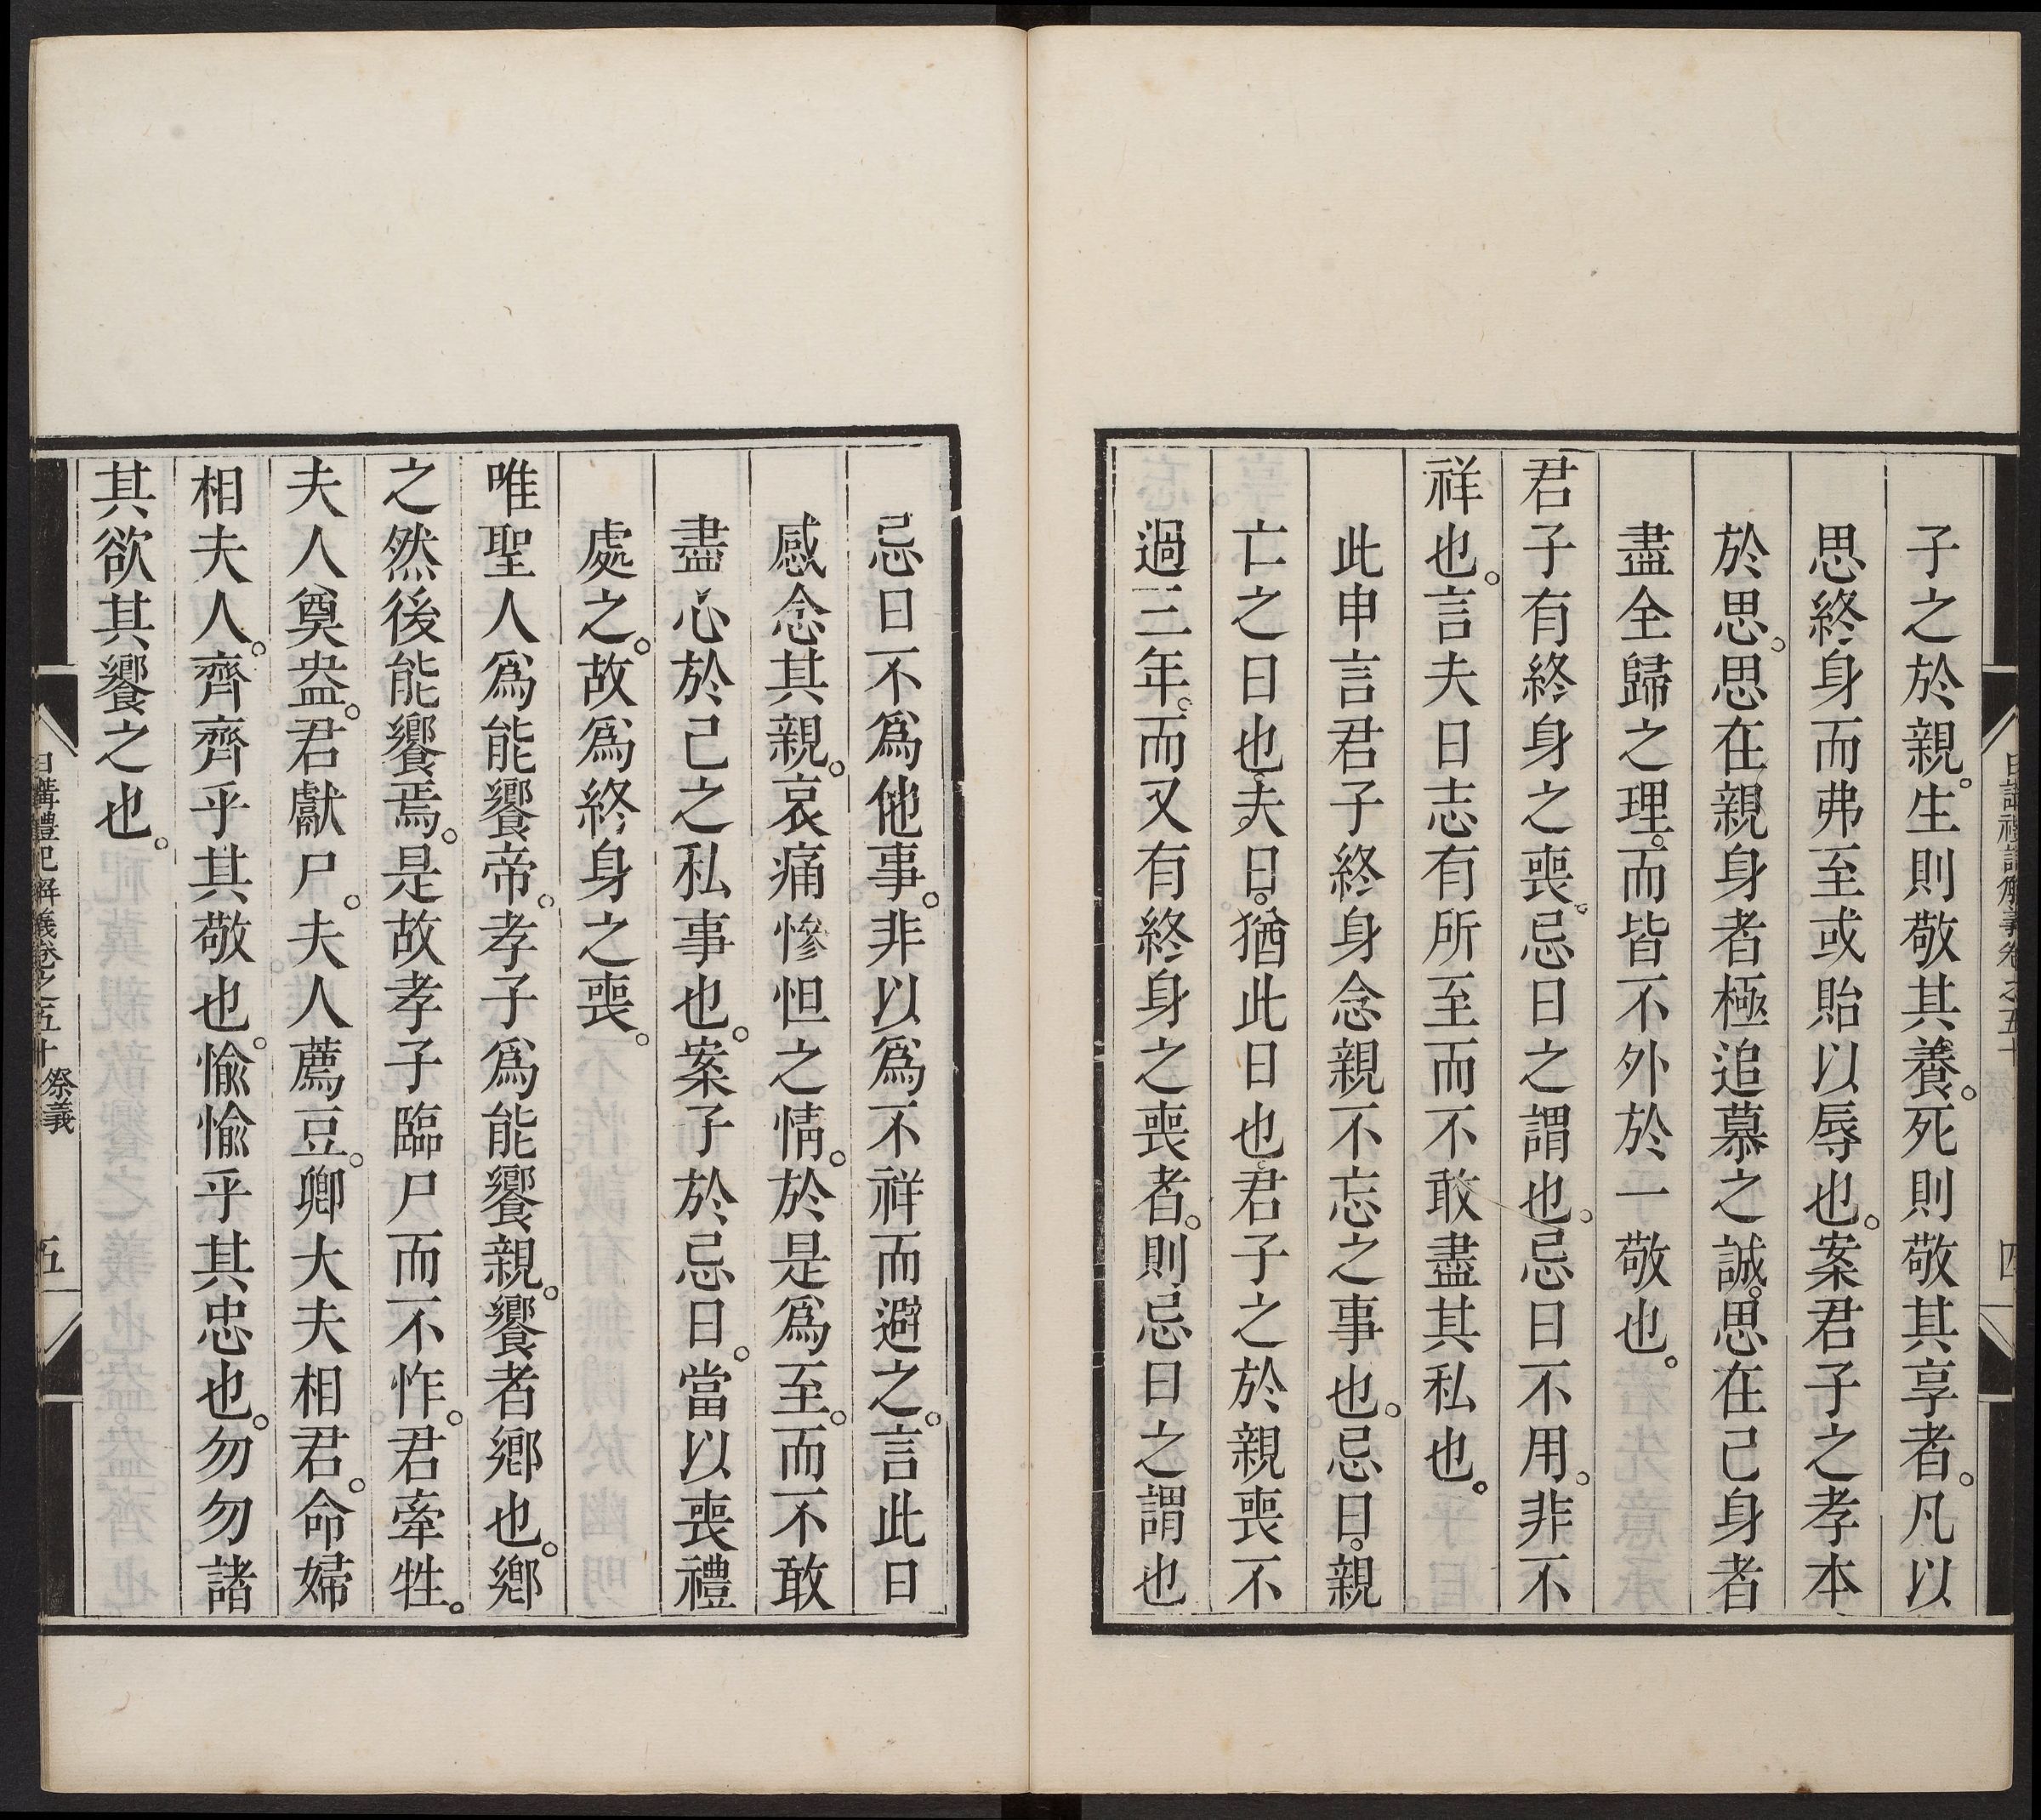 日講禮記解義卷之五十
四
子之於親。生則敬其養。死則敬其享者。凡以
思終身而弗至或貽以辱也。案君子之孝本
於思。思在親身者極追慕之誠。思在己身者
盡全歸之理。而皆不外於一敬也。
君子有終身之喪。忌日之謂也。忌日不用。非不
祥也。言夫日志有所至而不敢盡其私也。
此申言君子終身念親不忘之事也。忌日。親
亡之日也。夫日。猶此日也。君子之於親喪不
過三年。而又有終身之喪者。則忌日之謂也
忌日不爲他事。非以爲不祥而避之。言此日
感念其親。哀痛慘怛之情。於是爲至。而不敢
盡心於己之私事也。案子於忌日。當以喪禮
處之。故爲終身之喪。
唯聖人爲能饗帝。孝子爲能饗親。饗者鄉也。鄉
之然後能饗焉。是故孝子臨尸而不怍。君牽牲。
夫人奠盎。君獻尸。夫人薦豆。卿大夫相君。命婦
相夫人。齊齊乎其敬也。愉愉乎其忠也。勿勿諸
其欲其饗之也。
日講禮記解義卷之五十 祭義
五